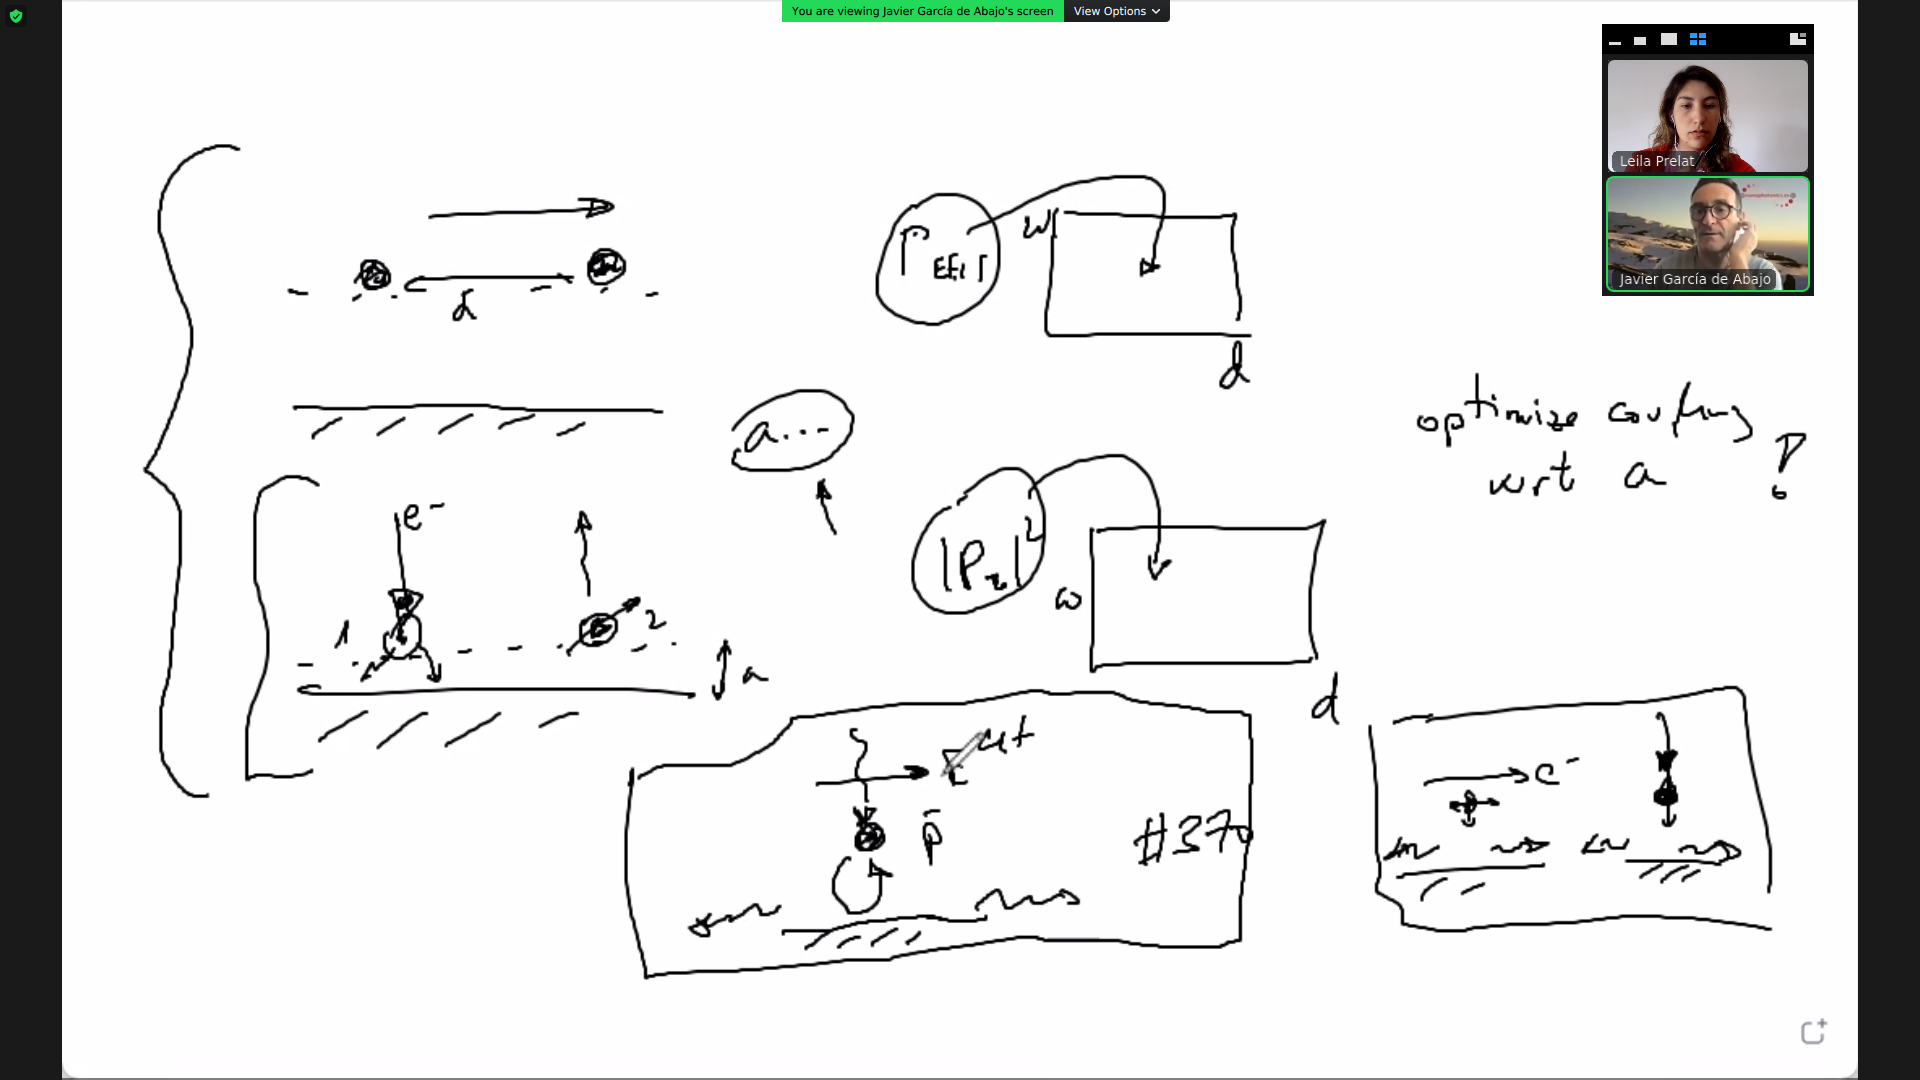 You are viewing Javier García de Abajo's screen
View Options
Leila Prelat
Javier García de Abajo
d
Γ EELS
ω
d
a...
optimize coupling
wrt a !
e-
1
2
a
|P2|²
ω
d
E ext
p
#370
e-